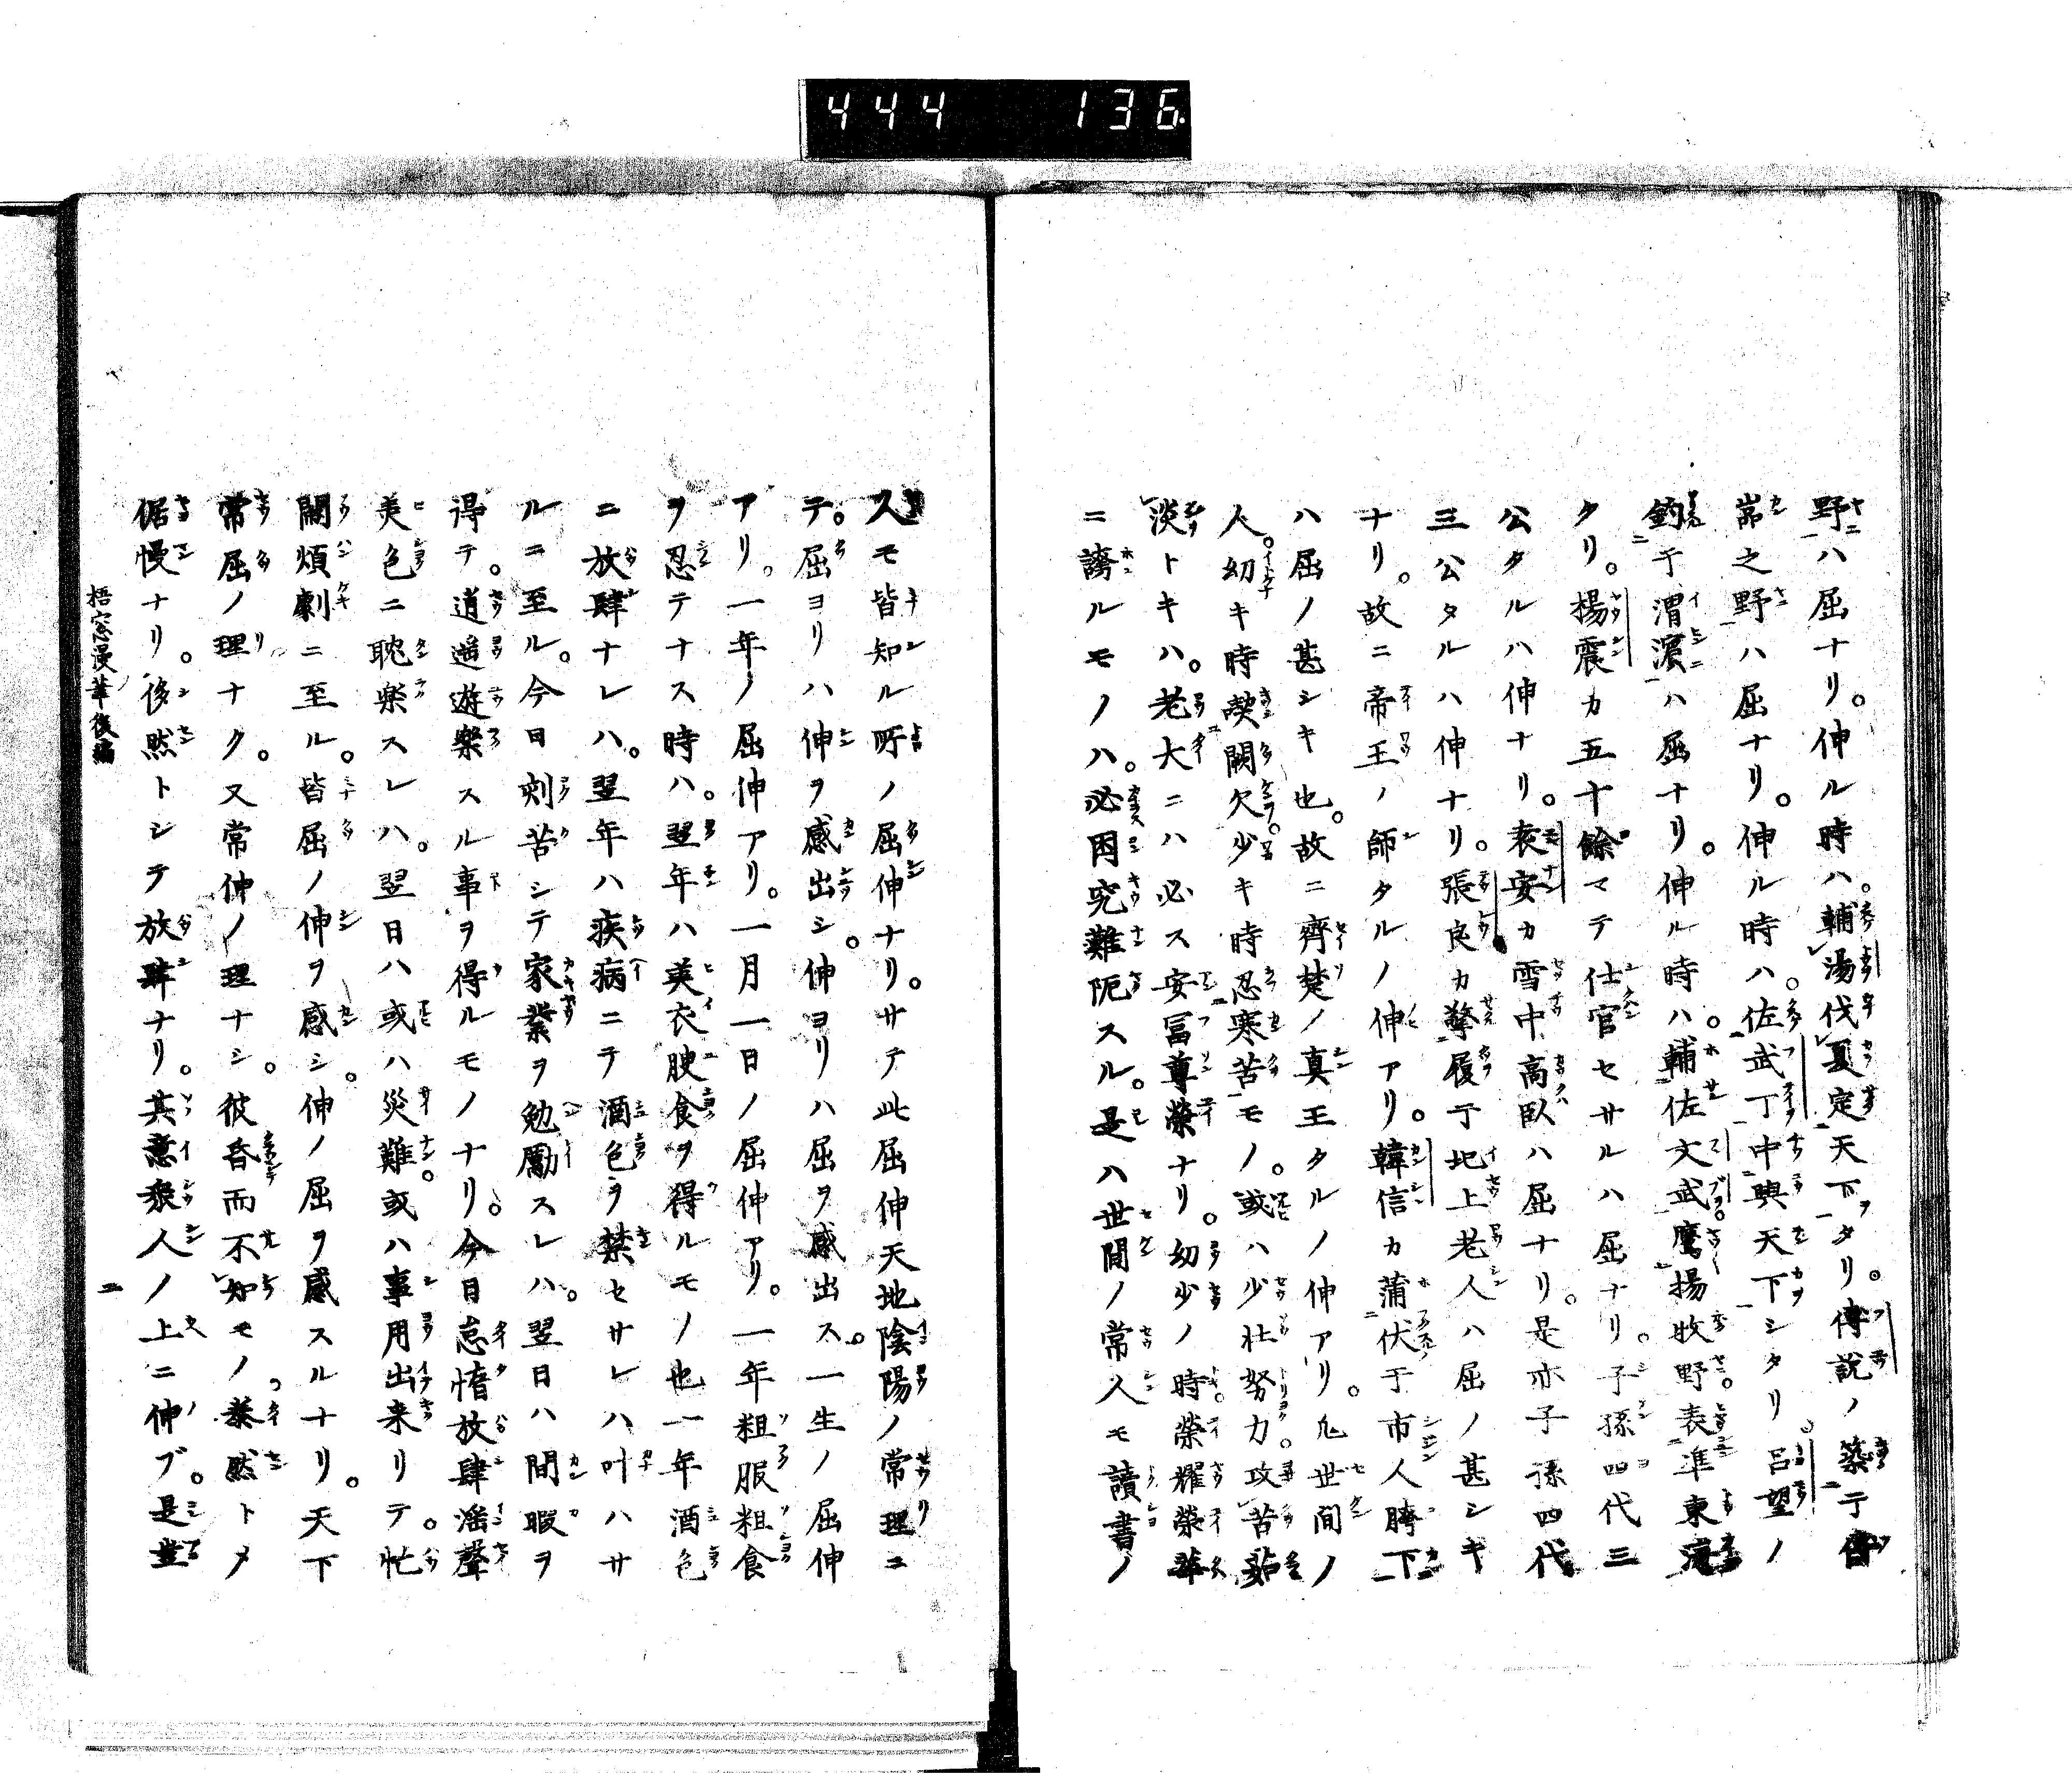 444 136
野ハ屈ナリ。伸ル時ハ。輔湯伐夏定天下タリ。傅説ノ築于傅
岩之野ハ屈ナリ。伸ル時ハ。佐武丁中興天下シタリ。呂望ノ
釣于渭濵ハ屈ナリ。伸ル時ハ。輔佐文武。鷹揚牧野。表準東海
タリ。楊震カ五十餘マテ仕官セサルハ屈ナリ。子孫四代三
公タルハ伸ナリ。袁安カ雪中高臥ハ屈ナリ。是亦子孫四代
三公タルハ伸ナリ。張良カ擎履于圯上老人ハ屈ノ甚シキ
ナリ。故ニ帝王ノ師タルノ伸アリ。韓信カ蒲伏于市人胯下
ハ屈ノ甚シキ也。故ニ齊楚ノ真王タルノ伸アリ。凢世間ノ
人。幼キ時喫闕欠。少キ時忍寒苦モノ。或ハ少壮努力。攻苦茹
淡トキハ。老大ニハ必ス安冨尊榮ナリ。幼少ノ時。榮耀榮華
ニ誇ルモノハ。必困究難阨スル。是ハ世間ノ常人モ讀書ノ
スモ皆知ル所ノ屈伸ナリ。サテ此屈伸天地陰陽ノ常理ニ
テ。屈ヨリハ伸ヲ感出シ。伸ヨリハ屈ヲ感出ス。一生ノ屈伸
アリ。一年ノ屈伸アリ。一月一日ノ屈伸アリ。一年粗服粗食
ヲ忍テナス時ハ。翌年ハ美衣腴食ヲ得ルモノ也一年酒色
ニ放肆ナレハ。翌年ハ疾病ニテ酒色ヲ禁セサレハ叶ハサ
ルニ至ル。今日刻苦シテ家業ヲ勉勵スレハ。翌日ハ間暇ヲ
得テ。逍遥遊樂スル事ヲ得ルモノナリ。今日怠惰放肆滛聲
美色ニ耽楽スレハ。翌日ハ或ハ災難。或ハ事用出来リテ。忙
閙煩劇ニ至ル。皆屈ノ伸ヲ感シ。伸ノ屈ヲ感スルナリ。天下
常屈ノ理ナク。又常伸ノ理ナシ。彼昏而不知モノ、泰然トメ
倨慢ナリ。侈然トシテ放肆ナリ。其意衆人ノ上ニ伸ブ。是豈
梧窓漫筆後編
二